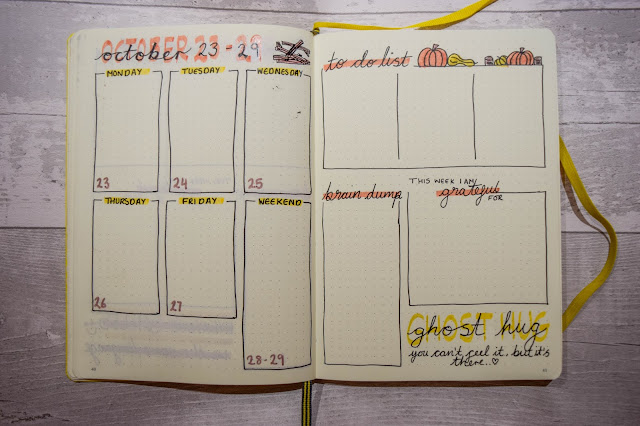 october 23-29
OCTOBER 23-29
MONDAY
TUESDAY
WEDNESDAY
23
24
25
THURSDAY
FRIDAY
WEEKEND
26
27
28-29
to do list
brain dump
THIS WEEK I AM
grateful
FOR
GHOST HUG
ghost hug
you can't feel it, but it's
there..♡